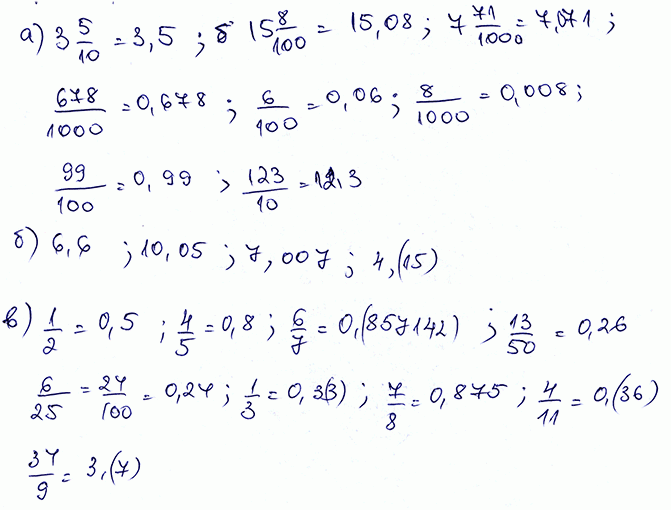 а) 3 5/10 = 3,5 ; б 15 8/100 = 15,08 ; 7 71/1000 = 7,071 ;
678/1000 = 0,678 ; 6/100 = 0,06 ; 8/1000 = 0,008 ;
99/100 = 0,99 ; 123/10 = 12,3
б) 6,6 ; 10,05 ; 7,007 ; 4,(15)
в) 1/2 = 0,5 ; 4/5 = 0,8 ; 6/7 = 0,(857142) ; 13/50 = 0,26
6/25 = 24/100 = 0,24 ; 1/3 = 0,3(3) ; 7/8 = 0,875 ; 4/11 = 0,(36)
34/9 = 3,(7)